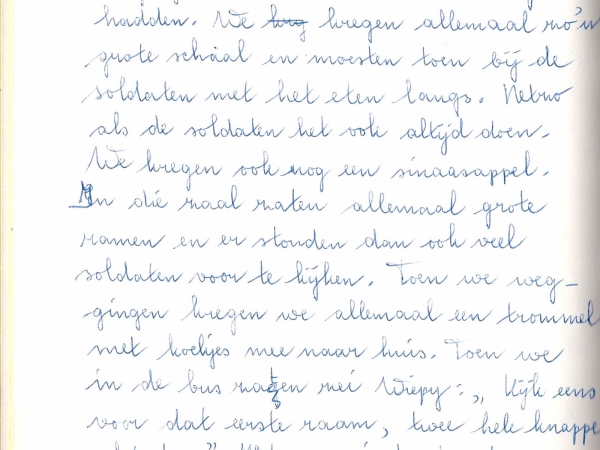 hadden. We krug kregen allemaal zo'n
grote schaal en moesten toen bij de
soldaten met het eten langs. Netzo
als de soldaten het ook altijd doen.
We kregen ook nog een sinaasappel.
In die zaal zaten allemaal grote
ramen en er stonden dan ook veel
soldaten voor te kijken. Toen we weg-
gingen kregen we allemaal een trommel
met koekjes mee naar huis. Toen we
in de bus zaten zei Wiepy: „Kijk eens
voor dat eerste raam, twee hele knappe